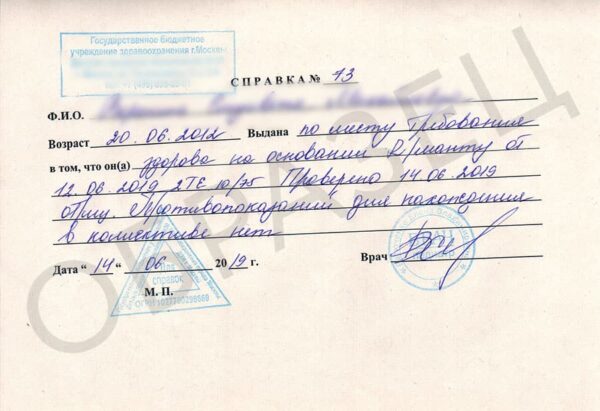 Государственное бюджетное
учреждение здравоохранения г.Москвы
СПРАВКА № 73
Ф.И.О.
Возраст 20.06.2012 Выдана по месту требования
в том, что он(а) здорова на основании R/манту от
12.06.2019 2ТЕ Проверено 14.06.2019
отриц. Противопоказаний для нахождения
в коллективе нет
Дата “ 14 “ 06 2019 г.
Врач
М. П.
Для
справок
ВРАЧ
ОБРАЗЕЦ